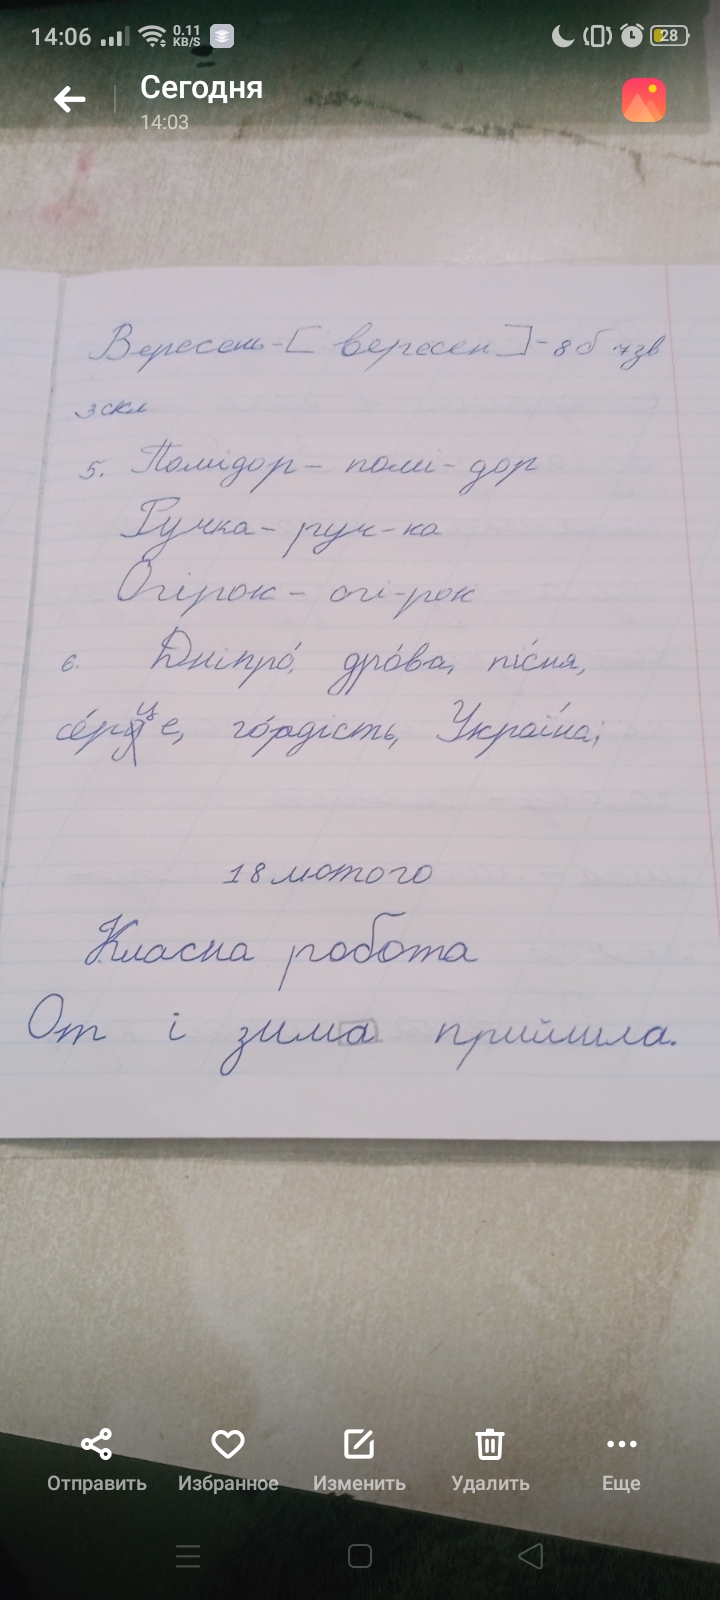 14:06 0.11 KB/S 28
Сегодня
14:03
Вересень - [вересен] - 8 б 7 зв
3 скл
5. Помідор - помі-дор
Ручка - руч-ка
Огірок - огі-рок
6. Дніпро́, дро́ва, пі́сня,
се́рце, го́рдість, Украї́на;
18 лютого
Класна робота
От і зима прийшла.
Отправить Избранное Изменить Удалить Еще